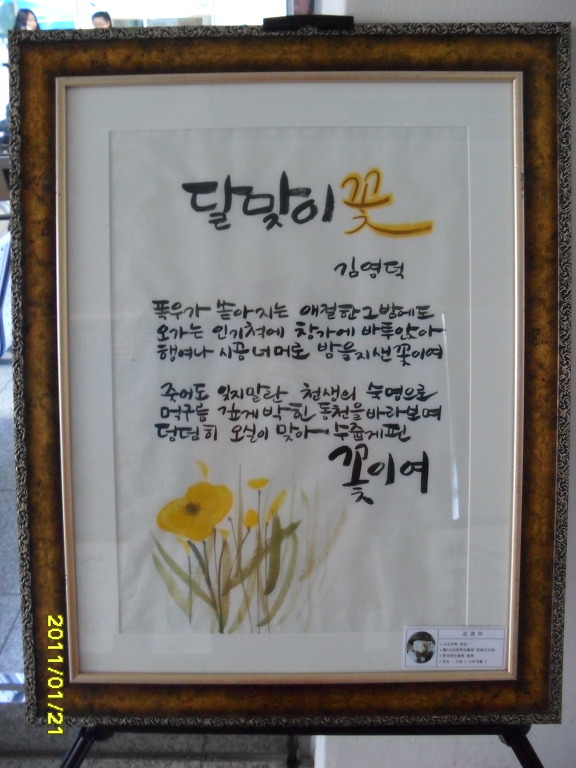 달맞이꽃
김영덕
폭우가 쏟아지는 애절한 그 밤에도
오가는 인기척에 창가에 바투앉아
행여나 시공 너머로 밤을 지샌 꽃이여
죽어도 잊지말란 천생의 숙명으로
먹구름 깊게 박힌 동천을 바라보며
덤덤히 오실이 맞아 수줍게 핀
꽃이여
김영덕
2011/01/21